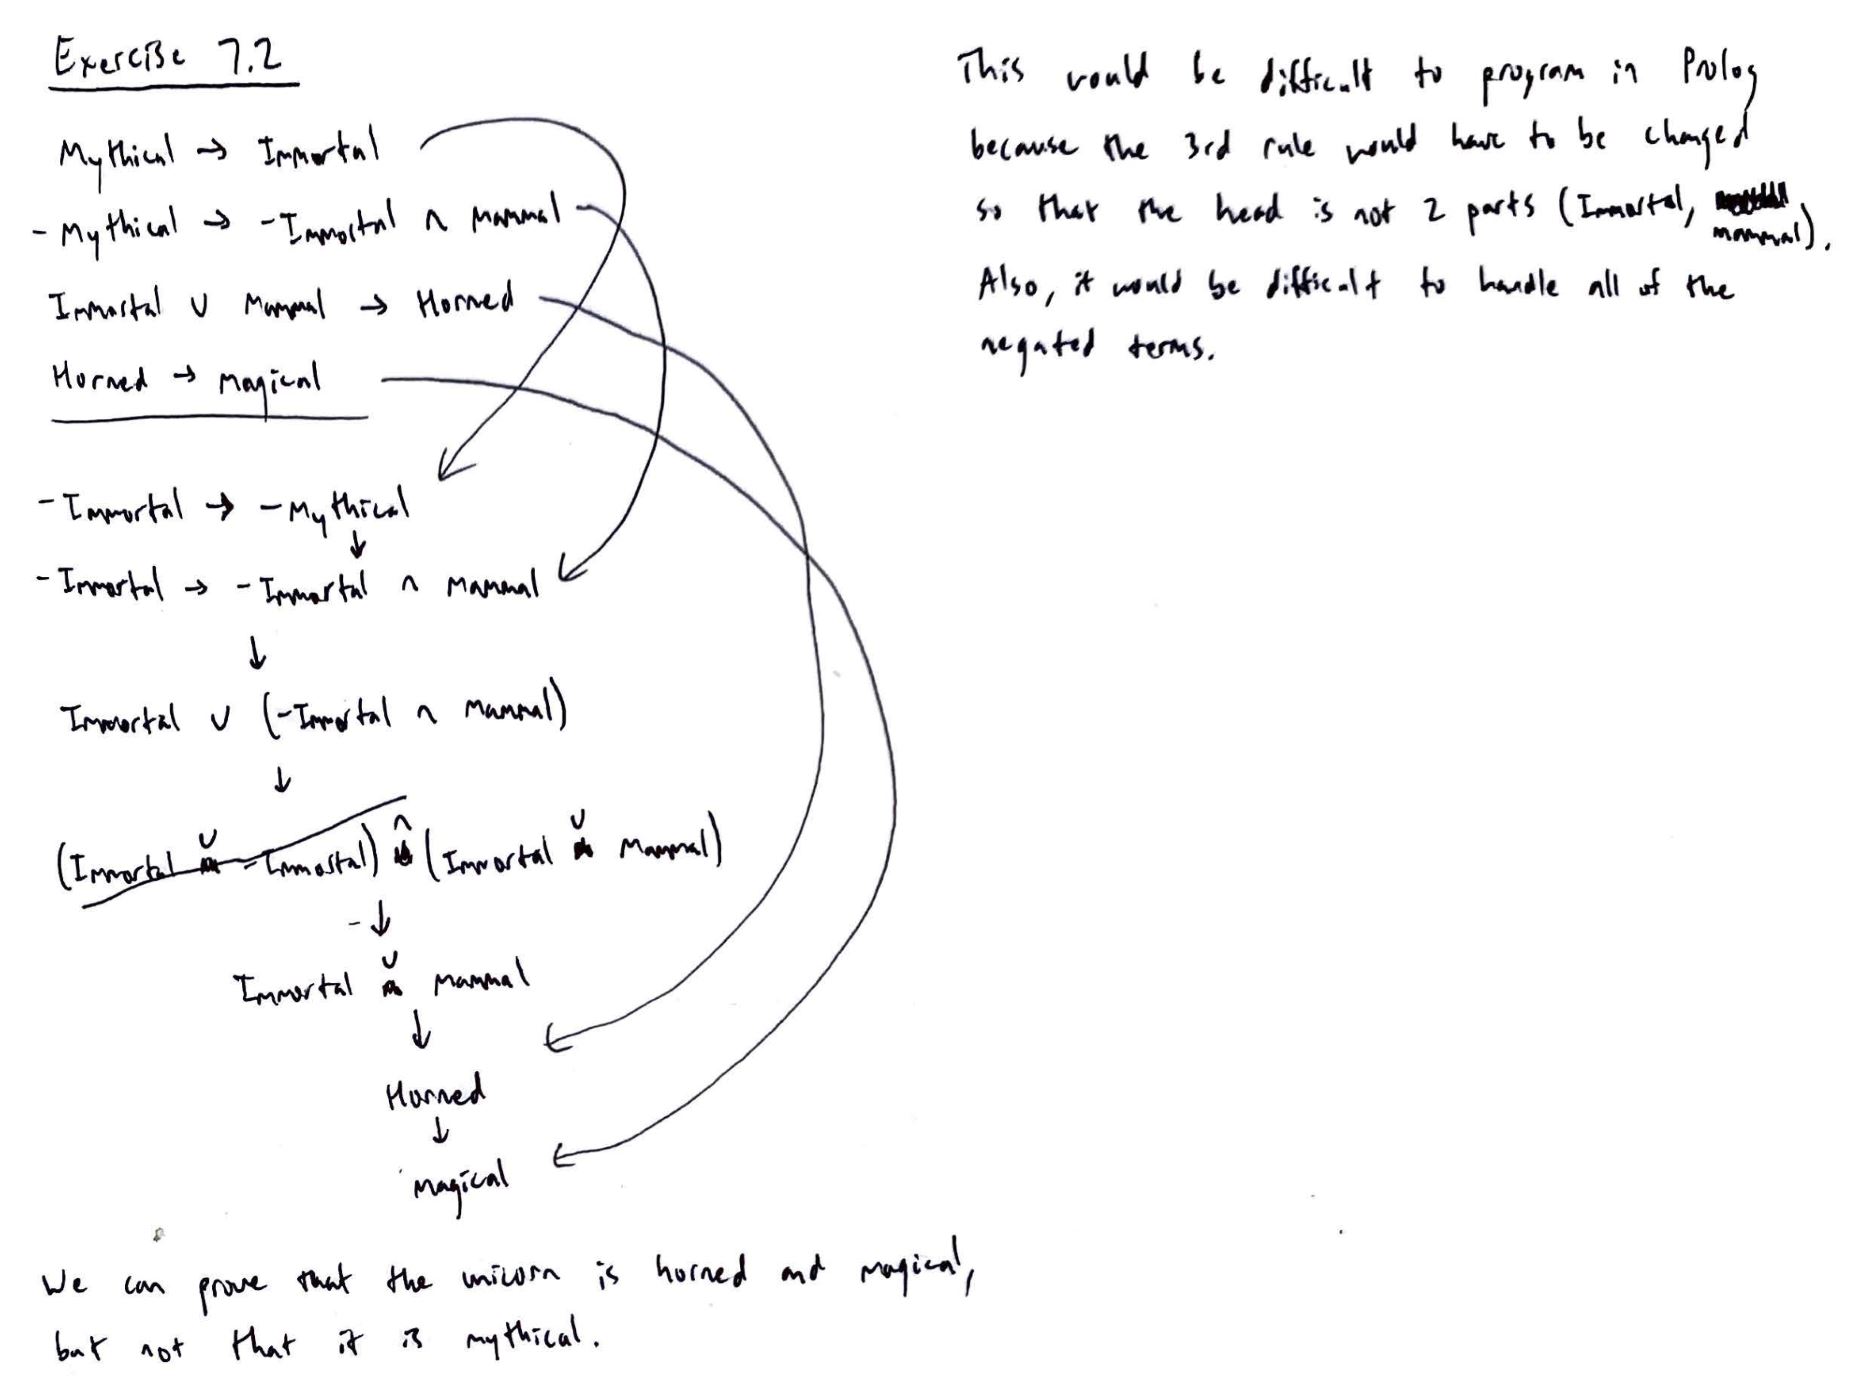 Exercise 7.2
Mythical → Immortal
- Mythical → - Immortal ∩ Mammal
Immortal ∪ Mammal → Horned
Horned → Magical
- Immortal → - Mythical
↓
- Immortal → - Immortal ∩ Mammal
↓
Immortal ∪ (- Immortal ∩ Mammal)
↓
(Immortal ∪ - Immortal) ∩ (Immortal ∪ Mammal)
- ↓
Immortal ∪ Mammal
↓
Horned
↓
Magical
We can prove that the unicorn is horned and magical,
but not that it is mythical.
This would be difficult to program in Prolog
because the 3rd rule would have to be changed
so that the head is not 2 parts (Immortal,
mammal).
Also, it would be difficult to handle all of the
negated terms.